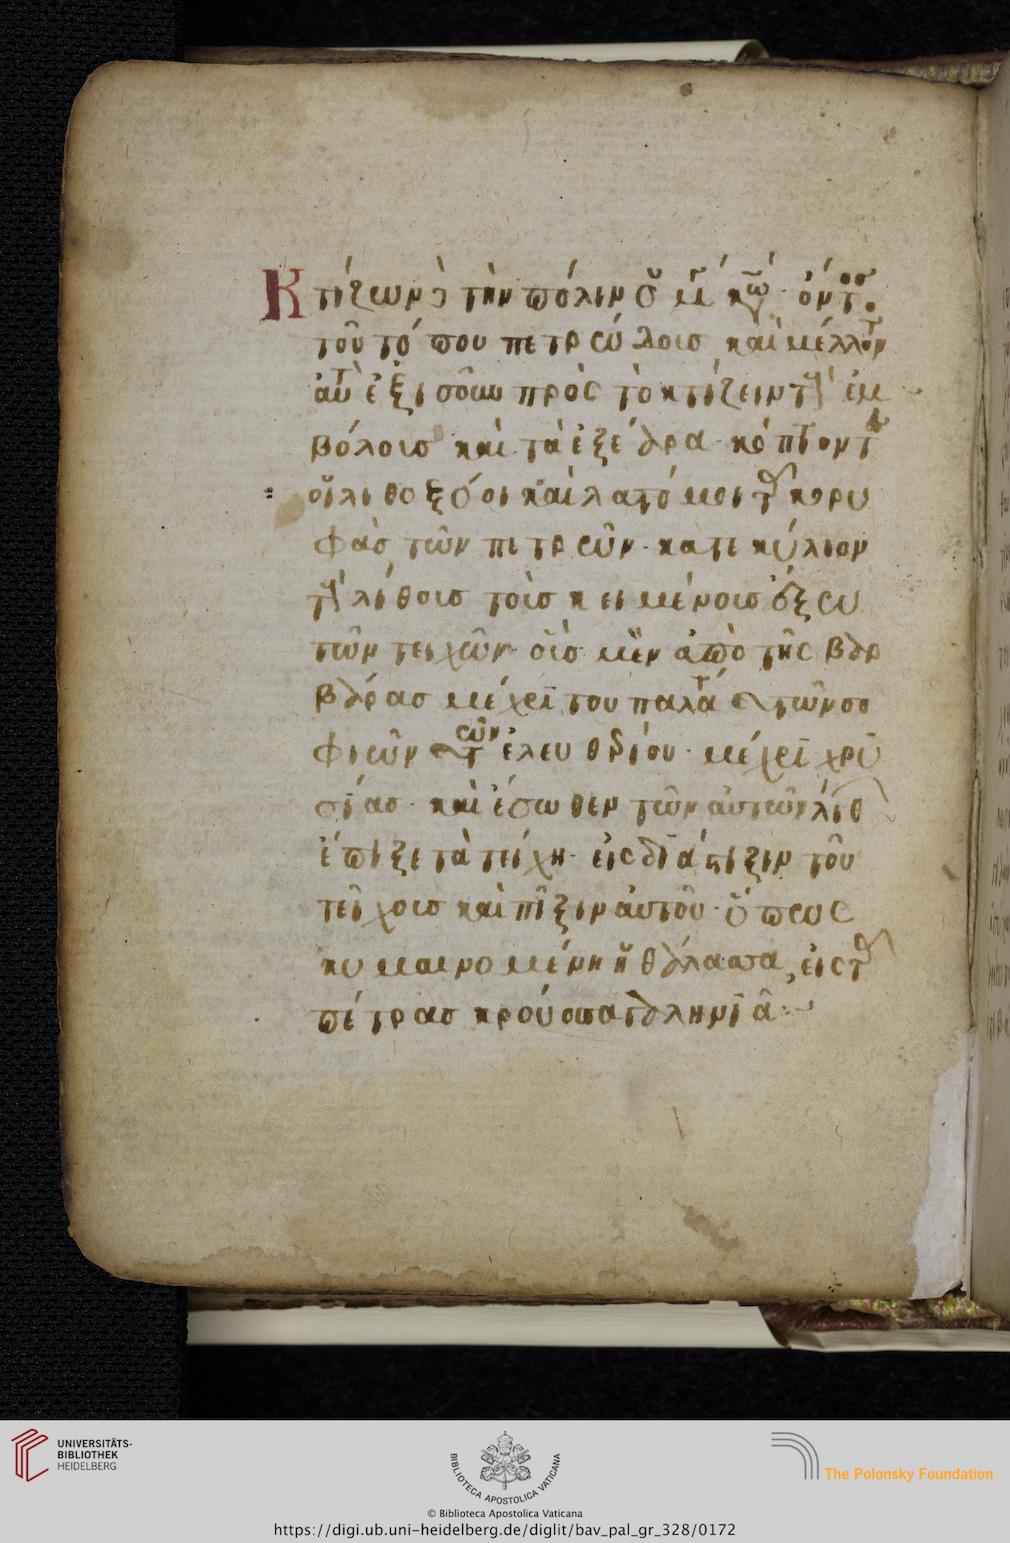 Κτίζων δὲ τὴν πόλιν ὁ μέ κων ὄντος
τοῦ τόπου πετρώλοισ καὶ μέλλον
αὐτ ἐξισοῦν πρὸς τὸ κτίζειν τ ἐμ
βόλοισ καὶ τὰ ἐξέδρα κόπτοντ
οἵ λιθοξόοι καὶ λατόμοι τ κορυ
φὰσ τῶν πετρῶν κατεκύλιον
τ λίθοισ τοῖσ κειμένοισ ἔξω
τῶν τειχῶν οἷσ μὲν ἀπὸ τῆς βαρ
βάρασ μέχρι του παλατ τῶν σο
φιῶν τῶν ἐλευθερίου μέχρι χρυ
σίασ καὶ ἔσωθεν τῶν αὐτῶν λίθ
ἔπιξε τὰ τείχη εἰς διάπιξιν τοῦ
τείχοισ καὶ πῖξιν αὐτοῦ ὅπως
κυμαινομένη ἡ θάλασσα, εἰς τ
πέτρασ κρούουσα
UNIVERSITÄTS-
BIBLIOTHEK
HEIDELBERG
BIBLIOTECA APOSTOLICA VATICANA
The Polonsky Foundation
© Biblioteca Apostolica Vaticana
https://digi.ub.uni-heidelberg.de/diglit/bav_pal_gr_328/0172